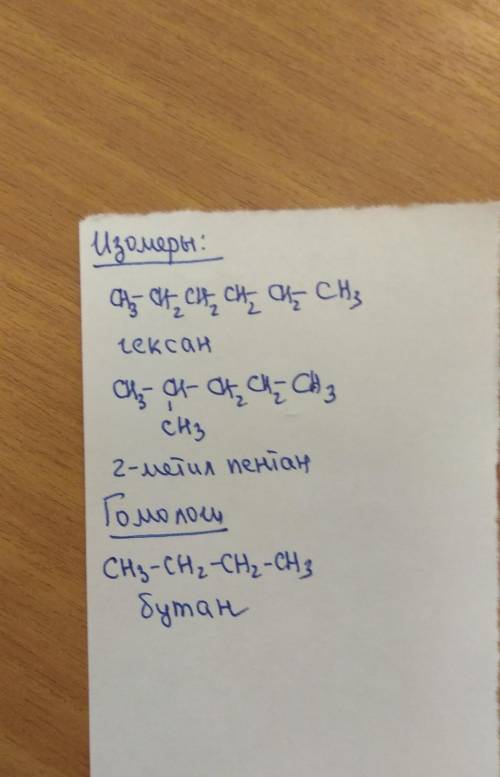 Изомеры:
CH3-CH2-CH2-CH2-CH2-CH3
гексан
CH3-CH-CH2-CH2-CH3
CH3
2-метил пентан
Гомологи
CH3-CH2-CH2-CH3
бутан